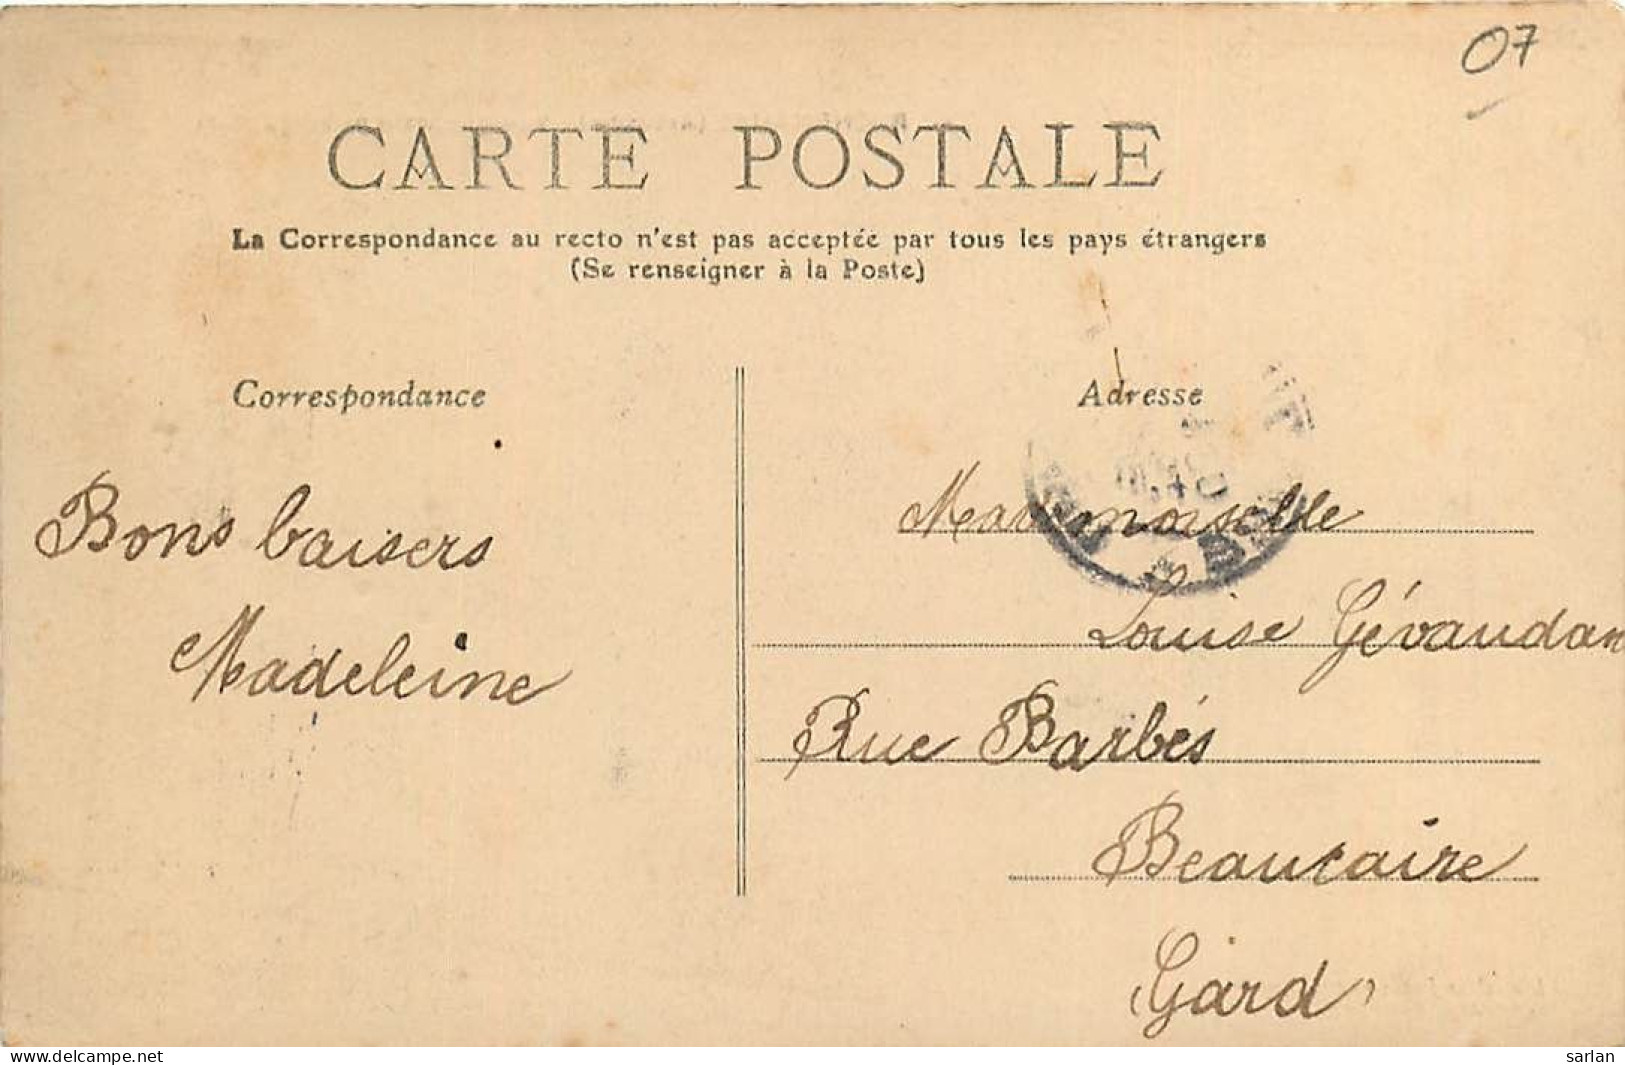 07
CARTE POSTALE
La Correspondance au recto n'est pas acceptée par tous les pays étrangers
(Se renseigner à la Poste)
Correspondance
Adresse
Bons baisers
Madeleine
Mademoiselle
Louise Gévaudan
Rue Barbés
Beaucaire
Gard
www.delcampe.net
sarlan